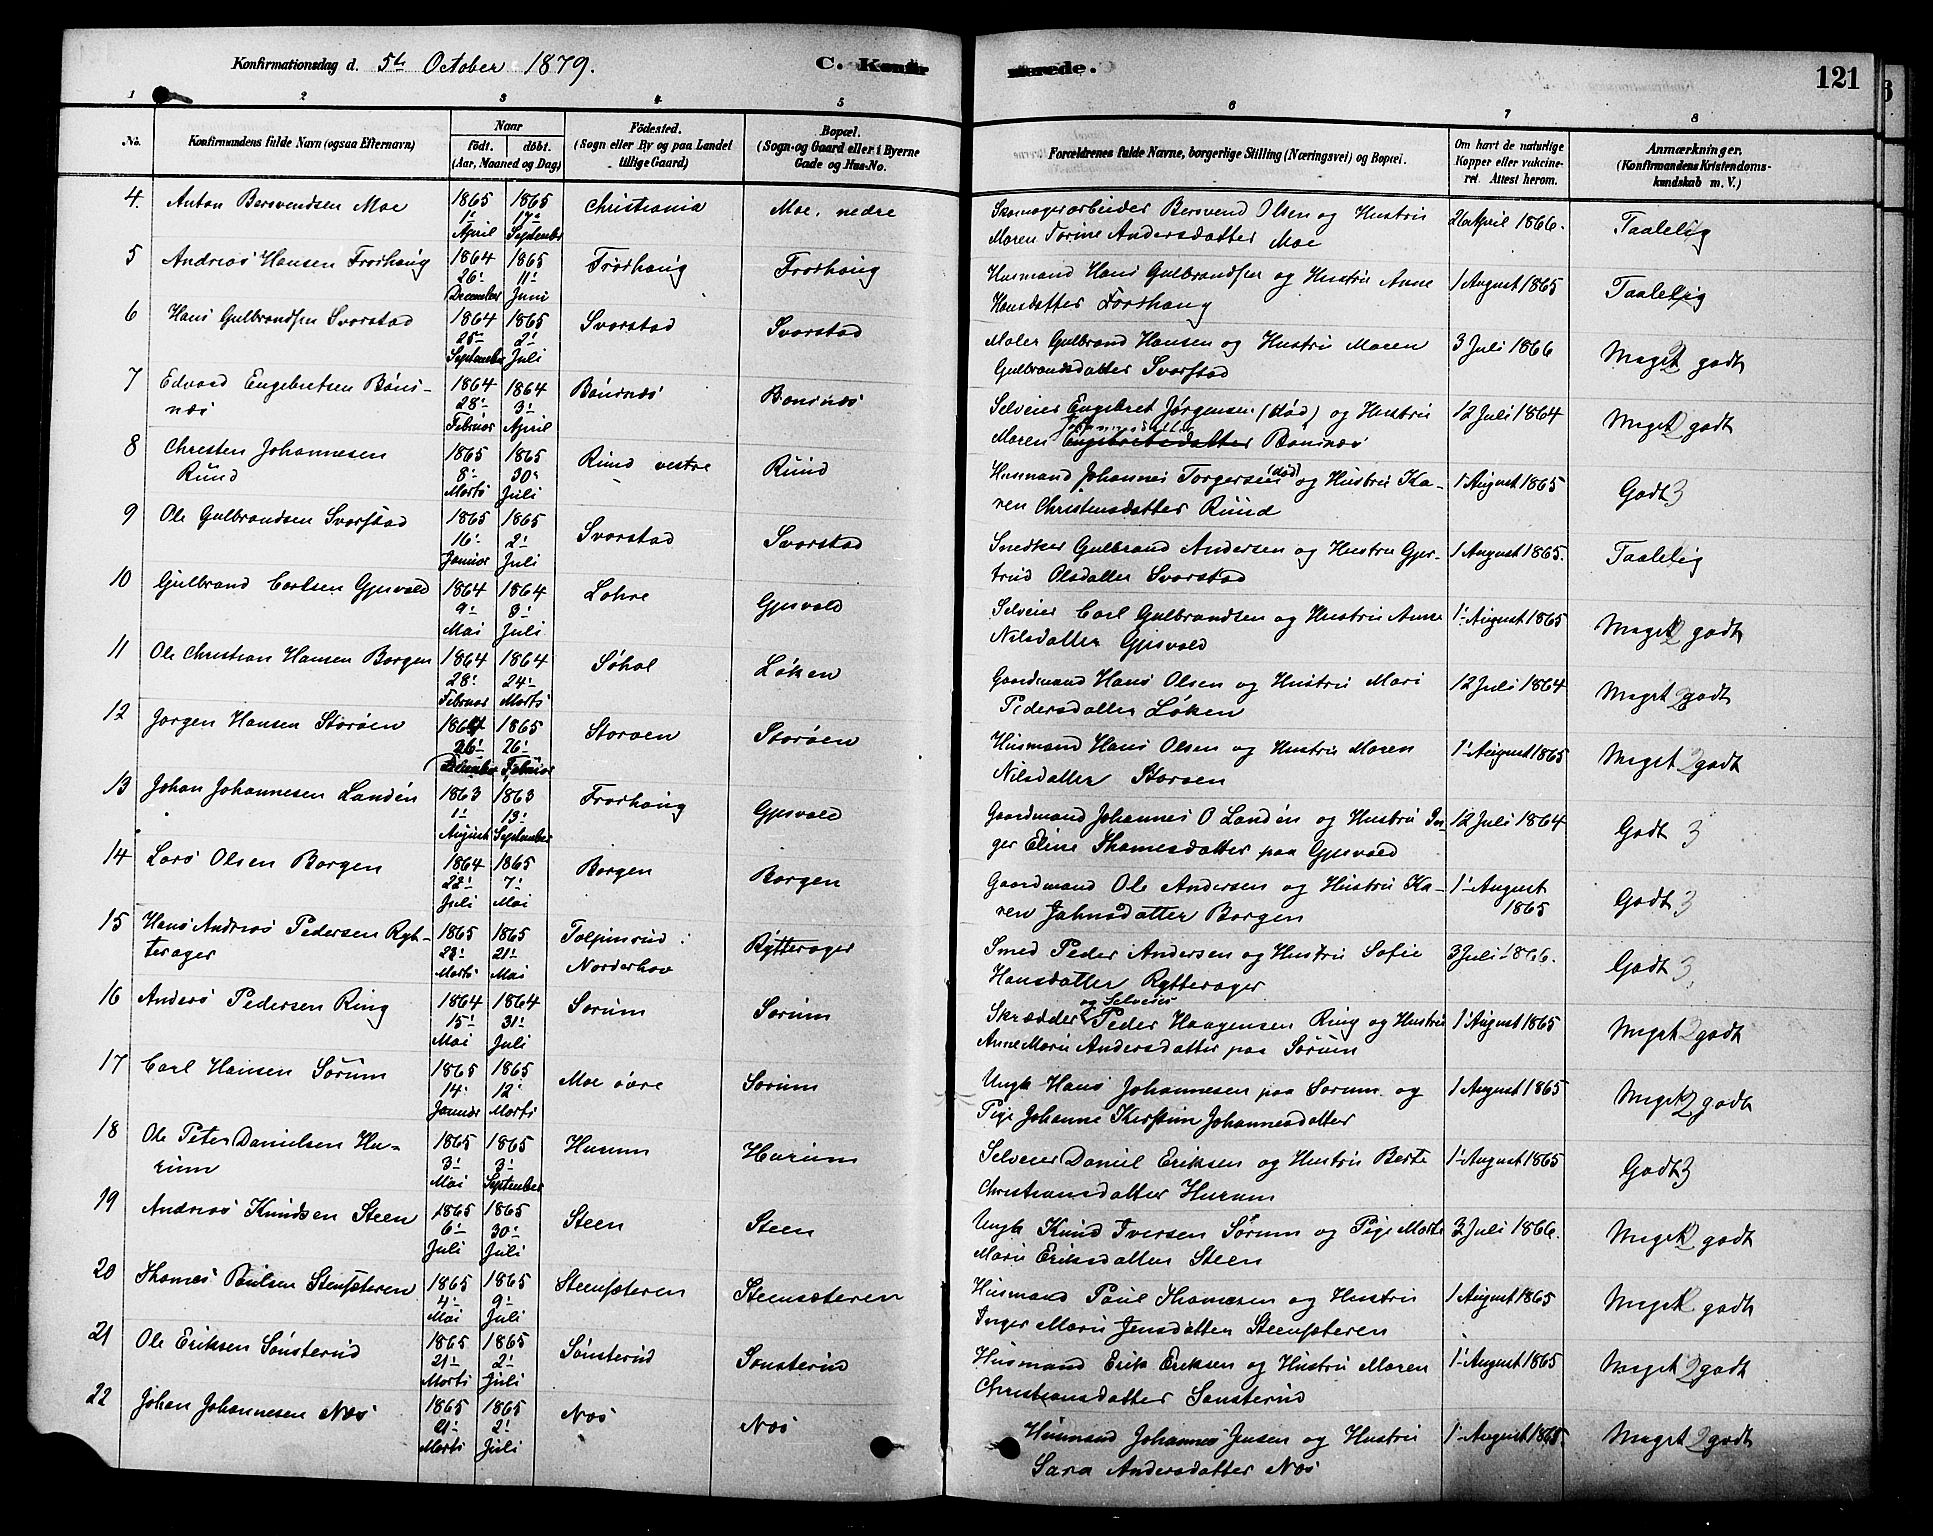 Konfirmationsdag d. 5te October 1879. C. Konfirmerede. 121
1 2 3 4 5 6 7 8
No. Konfirmandens fulde Navn (ogsaa Efternavn) Naar født. døbt. (Aar, Maaned og Dag) Fødested. (Sogn eller By og paa Landet tillige Gaard) Bopæl. (Sogn- og Gaard eller i Byerne Gade og Hus-No. Forældrenes fulde Navne, borgerlige Stilling (Næringsvei) og Bopæl. Om havt de naturlige Kopper eller vakcineret. Attest herom. Anmærkninger. (Konfirmandens Kristendomskundskab m. V.)
4. Anton Bersvendsen Moe 1865 1865 Christiania Moe, nedre Skomagerarbeider Bersvend Olsen og Hustru 26 April 1866. Taalelig
1 April 17 September Maren Torine Andersdatter Moe
5 Andreas Hansen Frorhaug 1864 1865 Frorhaug Frorhaug Husmand Hans Gulbrandsen og Hustru Anne 1 August 1865 Taalelig
26 December 11 Juni Hansdatter Frorhaug
6 Hans Gulbrandsen Svarstad 1864 1865 Svarstad Svarstad Maler Gulbrand Hansen og Hustru Maren 3 Juli 1866 Meget 2 godt
25 September 2 Juli Gulbrandsdatter Svarstad
7 Edvard Engebretsen Bønsnæs 1864 1864 Bønsnæs Bønsnæs Selveier Engebret Jørgensen (død) og Hustru 12 Juli 1864 Meget 2 godt
28 Februar 3 April Maren Engebretsdatter Bønsnæs
8 Christen Johannesen Rund 1865 1865 Rund vestre Rund Husmand Johannes Torgersen (død) og Hustru Ka- 1 August 1865 Godt 3
8 Marts 30 Juli ren Christensdatter Rund
9 Ole Gulbrandsen Svarstad 1865 1865 Svarstad Svarstad Snedker Gulbrand Andersen og Hustru Gjer- 1 August 1865. Taalelig
16 Januar 2 Juli trud Olsdatter Svarstad
10 Gulbrand Carlsen Gjesvold 1864 1864 Lohre Gjesvold Selveier Carl Gulbrandsen og Hustru Anne 1 August 1865 Meget 2 godt
9 Mai 3 Juli Nilsdatter Gjesvold
11 Ole Christian Hansen Borgen 1864 1864 Søhol Løken Gaardmand Hans Olsen og Hustru Mari 12 Juli 1864 Meget 2 godt
28 Februar 24 Marts Pedersdatter Løken
12 Jørgen Hansen Storøen 1864 1865 Storøen Storøen Husmand Hans Olsen og Hustru Maren 1 August 1865 Meget 2 godt
26 December 26 Februar Nilsdatter Storøen
13 Johan Johannesen Landén 1863 1863 Frorhaug Gjesvold Gaardmand Johannes O Landén og Hustru In- 12 Juli 1864 Godt 3
1 August 13 September ger Eline Thomesdatter paa Gjesvold
14 Lars Olsen Borgen 1864 1865 Borgen Borgen Gaardmand Ole Andersen og Hustru Ka- 1 August 1865 Godt 3
22 Juli 7 Mai ren Jahnsdatter Borgen
15 Hans Andreas Pedersen Rytterager 1865 1865 Tolpinrud i Norderhov Rytterager Smed Peder Andersen og Hustru Sofie 3 Juli 1866. Godt 3
Marts 21 Mai Hansdatter Rytterager
16 Anders Pedersen Ring 1864 1864 Sørum Sørum Skrædder og Selveier Peder Haagensen Ring og Hustru 1 August 1865 Meget 2 godt
15 Mai 31 Juli Anne Marie Andersdatter paa Sørum
17 Carl Hansen Sørum 1865 1865 Moe øvre Sørum Ungk Hans Johannesen paa Sørum og 1 August 1865 Meget 2 godt
14 Januar 12 Marts Pige Johanne Kirstine Johannesdatter
18 Ole Peter Danielsen Hurum 1865 1865 Hurum Hurum Selveier Daniel Eriksen og Hustru Berte 1 August 1865 Godt 3
3 Mai 3 September Christiansdatter Hurum
19 Andreas Knudsen Steen 1865 1865 Steen Steen Ungk Knud Iversen Sørum og Pige Marte 3 Juli 1866. Meget 2 godt
6 Juli 30 Juli Marie Eriksdatter Steen
20 Thomas Paulsen Steensæteren 1865 1865 Steensæteren Steensæteren Husmand Paul Thomesen og Hustru 1 August 1865 Meget 2 godt
4 Mai 9 Juli Inger Marie Jensdatter Steensæteren
21 Ole Eriksen Sønsterud 1865 1865 Sønsterud Sønsterud Husmand Erik Eriksen og Hustru Maren 1 August 1865 Meget 2 godt
21 Marts 2 Juli Christiansdatter Sønsterud
22 Johan Johannesen Næs 1865 1865 Næs Næs Husmand Johannes Jensen og Hustru 1 August 1865. Meget 2 godt
21 Marts 2 Juli Sara Andersdatter Næs